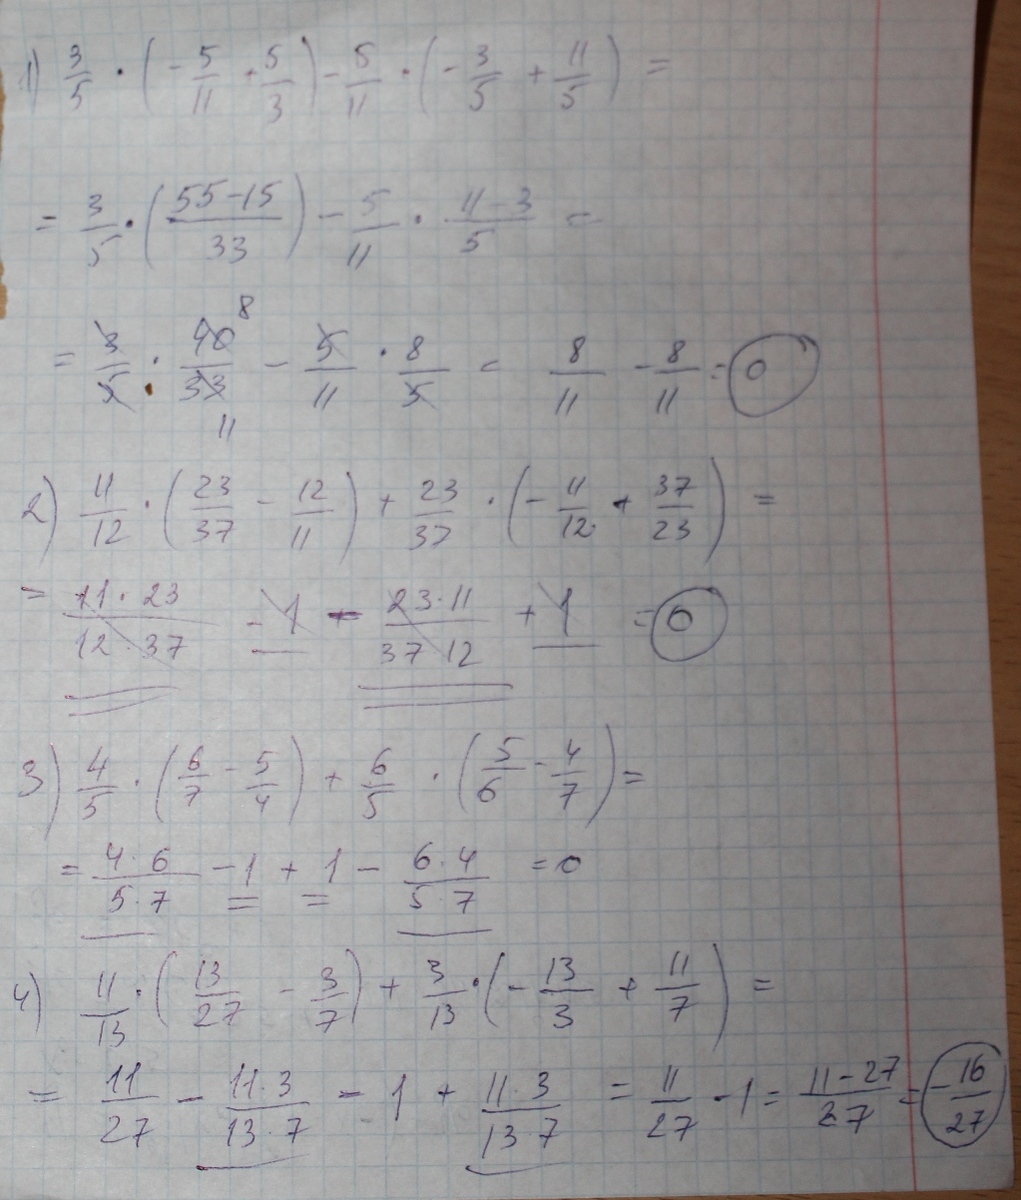 1) 3/5 · (-5/11 + 5/3) - 5/11 · (-3/5 + 11/5) =
= 3/5 · ((55-15)/33) - 5/11 · (11-3)/5 =
= 3/5 · 40/33 8 11 - 5/11 · 8/5 = 8/11 - 8/11 = 0
2) 11/12 · (23/37 - 12/11) + 23/37 · (-11/12 + 37/23) =
= (11·23)/(12·37) - 1 - (23·11)/(37 12) + 1 = 0
3) 4/5 · (6/7 - 5/4) + 6/5 · (5/6 - 4/7) =
= (4·6)/(5·7) - 1 + 1 - (6·4)/(5·7) = 0
4) 11/13 · (13/27 - 3/7) + 3/13 · (-13/3 + 11/7) =
= 11/27 - (11·3)/(13·7) - 1 + (11·3)/(13·7) = 11/27 - 1 = (11-27)/27 = -16/27